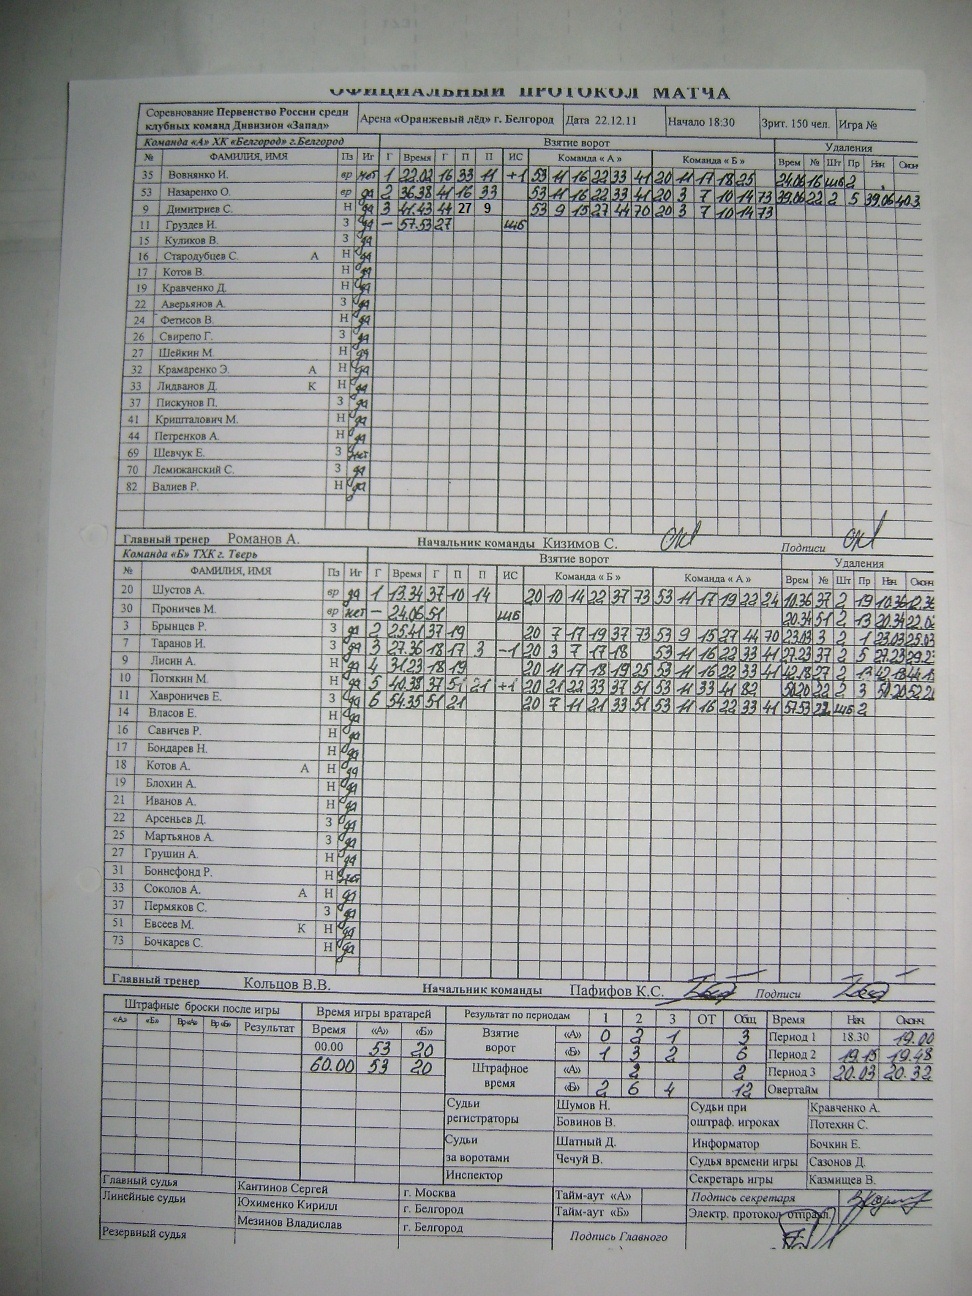 ОФИЦИАЛЬНЫЙ ПРОТОКОЛ МАТЧА
Соревнование Первенство России среди клубных команд Дивизион «Запад» Арена «Оранжевый лёд» г. Белгород Дата 22.12.11 Начало 18:30 Зрит. 150 чел. Игра №
Команда «А» ХК «Белгород» г.Белгород Взятие ворот Удаления
№ ФАМИЛИЯ, ИМЯ Пз Иг Г Время Г П П ИС Команда « А » Команда « Б » Врем № Шт Пр Нач Окон
35 Вовнянко И. вр нет 1 22.02 16 33 11 +1 53 11 16 22 33 41 20 11 17 18 25 24.06 16 шб 2
53 Назаренко О. вр да 2 36.38 41 16 33 53 11 16 22 33 41 20 3 7 10 14 73 39.06 22 2 5 39.06
9 Димитриев С. Н да 3 41.43 44 27 9 53 9 15 27 44 70 20 3 7 10 14 73
11 Груздев И. З да – 57.53 27 шб
15 Куликов В. З да
16 Стародубцев С. А Н да
17 Котов В. Н да
19 Кравченко Д. Н да
22 Аверьянов А. З да
24 Фетисов В. Н да
26 Свирепо Г. З да
27 Шейкин М. Н да
32 Крамаренко Э. А Н да
33 Лидванов Д. К Н да
37 Пискунов П. З да
41 Кришталович М. Н да
44 Петренков А. Н да
69 Шевчук Е. З нет
70 Лемижанский С. З да
82 Валиев Р. Н да
Главный тренер Романов А. Начальник команды Кизимов С. Подписи
Команда «Б» ТХК г. Тверь Взятие ворот Удаления
№ ФАМИЛИЯ, ИМЯ Пз Иг Г Время Г П П ИС Команда « Б » Команда « А » Врем № Шт Пр Нач Оконч
20 Шустов А. вр да 1 13.34 37 10 14 20 10 14 22 37 73 53 11 17 19 22 24 10.36 37 2 19 10.36 12.36
30 Проничев М. вр нет – 24.06 51 шб 20.34 51 2 13 20.34
3 Брынцев Р. З да 2 25.41 37 19 20 7 17 19 37 73 53 9 15 27 44 70 23.03 3 2 1 23.03 25.03
7 Таранов И. З да 3 27.36 18 17 3 –1 20 3 7 17 18 53 11 16 22 33 41 27.23 37 2 5 27.23
9 Лисин А. Н да 4 31.23 18 19 20 11 17 18 19 25 53 11 16 22 33 41 42.18 27 2 13 42.18
10 Потякин М. Н да 5 40.38 37 51 21 +1 20 21 22 33 37 51 53 11 33 41 82 50.20 22 2 3 50.20
11 Хавроничев Е. З да 6 54.35 51 21 20 7 11 21 33 51 53 11 16 22 33 41 57.53 22 шб 2
14 Власов Е. Н да
16 Савичев Р. Н да
17 Бондарев Н. Н да
18 Котов А. А Н да
19 Блохин А. Н да
21 Иванов А. Н да
22 Арсеньев Д. З да
25 Мартьянов А. З да
27 Грушин А. Н да
31 Боннефонд Р. Н нет
33 Соколов А. А Н да
37 Пермяков С. З да
51 Евсеев М. К Н да
73 Бочкарев С. Н да
Главный тренер Кольцов В.В. Начальник команды Пафифов К.С. Подписи
Штрафные броски после игры Время игры вратарей Результат по периодам 1 2 3 ОТ Общ Время Нач. Оконч.
«А» «Б» Вр«А» Вр«Б» Результат Время «А» «Б» Взятие ворот «А» 0 2 1 3 Период 1 18.30 19.00
00.00 53 20 «Б» 1 3 2 6 Период 2 19.15 19.48
60.00 53 20 Штрафное время «А» 2 2 Период 3 20.03 20.32
«Б» 2 6 4 12 Овертайм
Судьи регистраторы Шумов Н. Судьи при оштраф. игроках Кравченко А.
Бовинов В. Потехин С.
Судьи за воротами Шатный Д. Информатор Бочкин Е.
Чечуй В. Судья времени игры Сазонов Д.
Инспектор Секретарь игры Казмищев В.
Главный судья Кантинов Сергей г. Москва Тайм-аут «А» Подпись секретаря
Линейные судьи Юхименко Кирилл г. Белгород Тайм-аут «Б» Электр. протокол отправл.
Мезинов Владислав г. Белгород
Резервный судья Подпись Главного